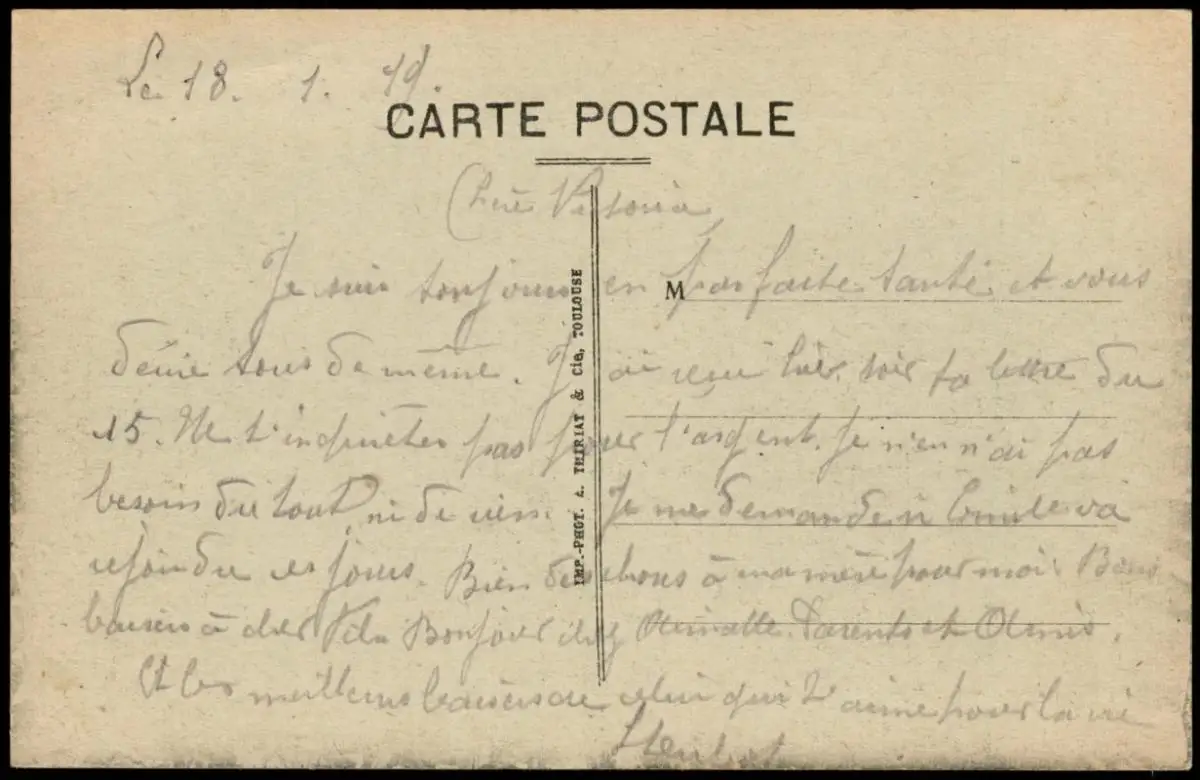 Le 18. 1. 19.
CARTE POSTALE
Chère Victoria,
Je suis toujours en parfaite santé et vous
désire tous de même. J'ai reçu hier soir ta lettre du
15. Ne t'inquiéter pas pour l'argent. Je n'en n'ai pas
besoin du tout, ni de rien. Je me demande si Emile va
rejoindre ces jours. Bien des choses à ma mère pour moi. Bons
baisers à Bonjour chez Parents et Amis.
Et les meilleurs baisers de celui qui t'aime pour la vie
M
IMP.-PHOT. A. THIRIAT & Cie, TOULOUSE